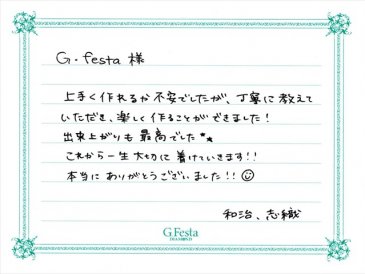 G・festa 様
上手く作れるか不安でしたが、丁寧に教えて
いただき、楽しく作ることができました！
出来上がりも最高でした**
これから一生大切に着けていきます!!
本当にありがとうございました!!☺
和治、志織
G.Festa
DIAMOND